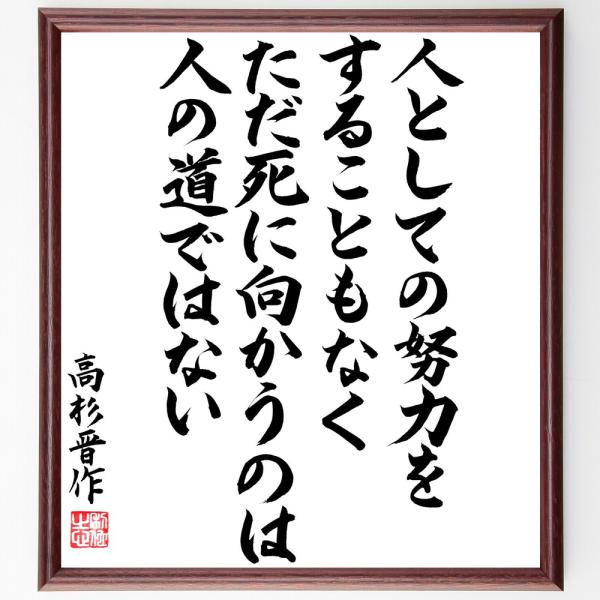 人としての努力を
することもなく
ただ死に向かうのは
人の道ではない
高杉晋作